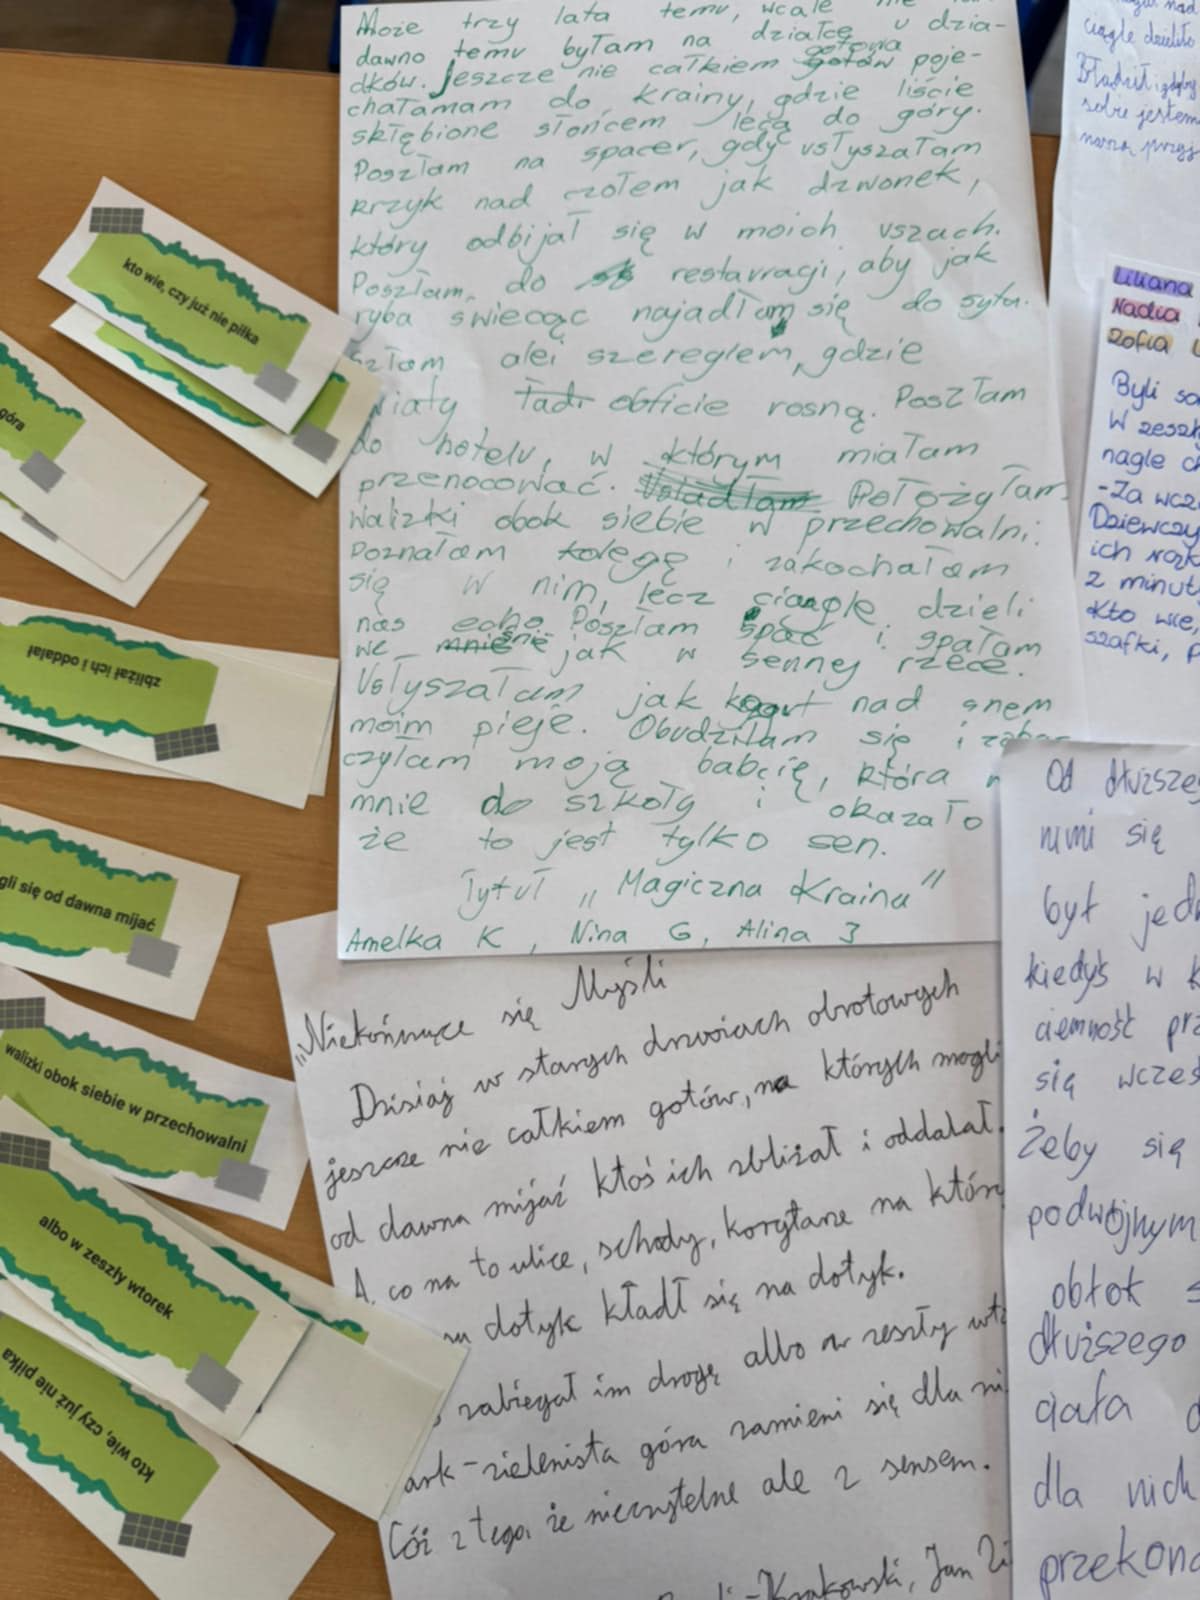 Może trzy lata temu, wcale nie
dawno temu byłam na działce u dzia-
dków. Jeszcze nie całkiem gotów gotowa poje-
chałamam do krainy, gdzie liście
skłębione słońcem lecą do góry.
Poszłam na spacer, gdy usłyszałam
krzyk nad czołem jak dzwonek,
który odbijał się w moich uszach.
Poszłam do restauracji, aby jak
ryba świecąc najadłam się do syta.
szłam alei szeregiem, gdzie
wiaty obficie rosną. Poszłam
do hotelu, w którym miałam
przenocować. Usiadłam Położyłam
walizki obok siebie w przechowalni.
Poznałam kolegę i zakochałam
się w nim, lecz ciągle dzieli
nas echo. Poszłam spać i spałam
we mnie śnie jak w sennej rzece.
Usłyszałam jak kogut nad snem
moim pieje. Obudziłam się i zoba
czyłam moją babcię, która
mnie do szkoły i okazało
że to jest tylko sen.
Tytuł „Magiczna Kraina"
Amelka K, Nina G, Alina J
„Niekończące się Myśli
Dzisiaj w starych drzwiach obrotowych
jeszcze nie całkiem gotów, na których mogli
od dawna mijać ktoś ich zbliżał i oddalał.
A co na to ulice, schody, korytarze na któr
dotyk kładł się na dotyk.
zabiegał im drogę albo w zeszły wto
ark-zielenista góra zamieni się dla ni
Cóż z tego, że nieczytelne ale z sensem.
-Krakowski, Jan
kto wie, czy już nie piłka
góra
zbliżał ich i oddalał
gli się od dawna mijać
walizki obok siebie w przechowalni
albo w zeszły wtorek
kto wie, czy już nie piłka
ciągle dzieliło
Błądził i gdyby
sobie jestem
Liliana
Nadia
Zofia
Byli są
W zeszł
nagle
-Za wcz
Dziewczy
ich
z minut
Kto wie,
szafki, p
Od dłuższeg
nimi się
był jed
kiedyś w k
ciemność prz
się wcześ
Żeby się
podwójnym
obłok s
dłuższego
ciała
dla nich
przekona